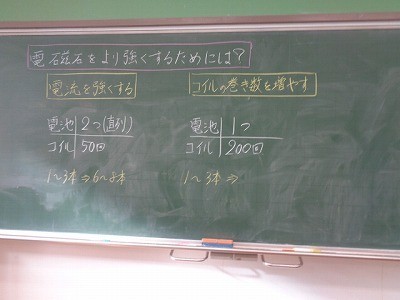 電磁石をより強くするためには?
電流を強くする
電池 2つ(直列)
コイル 50回
1〜3本⇒6〜8本
コイルの巻き数を増やす
電池 1つ
コイル 200回
1〜3本⇒